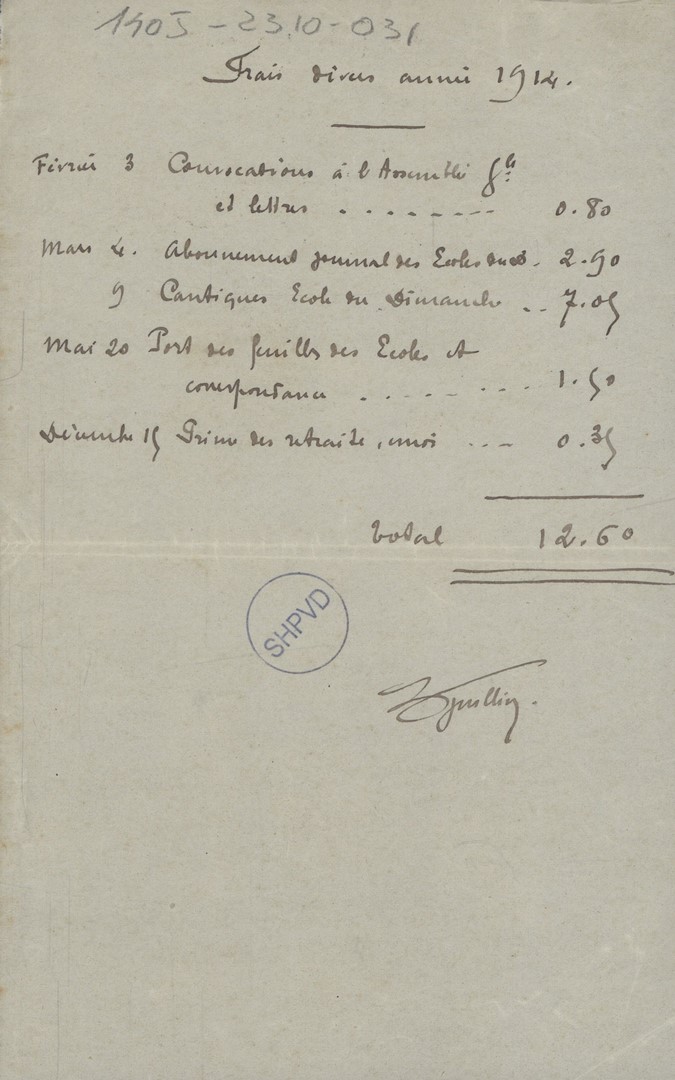 1405 - 23.10 - 031
Frais divers année 1914.
Février 3 Convocations à l'Assemblée Gle
et lettres . . . . . . . . 0.80
Mars 4. Abonnement journal des Ecoles du D. 2.90
9 Cantiques Ecole du Dimanche . . 7.05
Mai 20 Port des feuilles des Ecoles et
correspondance . . . . . . . . 1.50
Décembre 15 Prime des retraite, envoi . . . 0.35
total 12.60
SHPVD